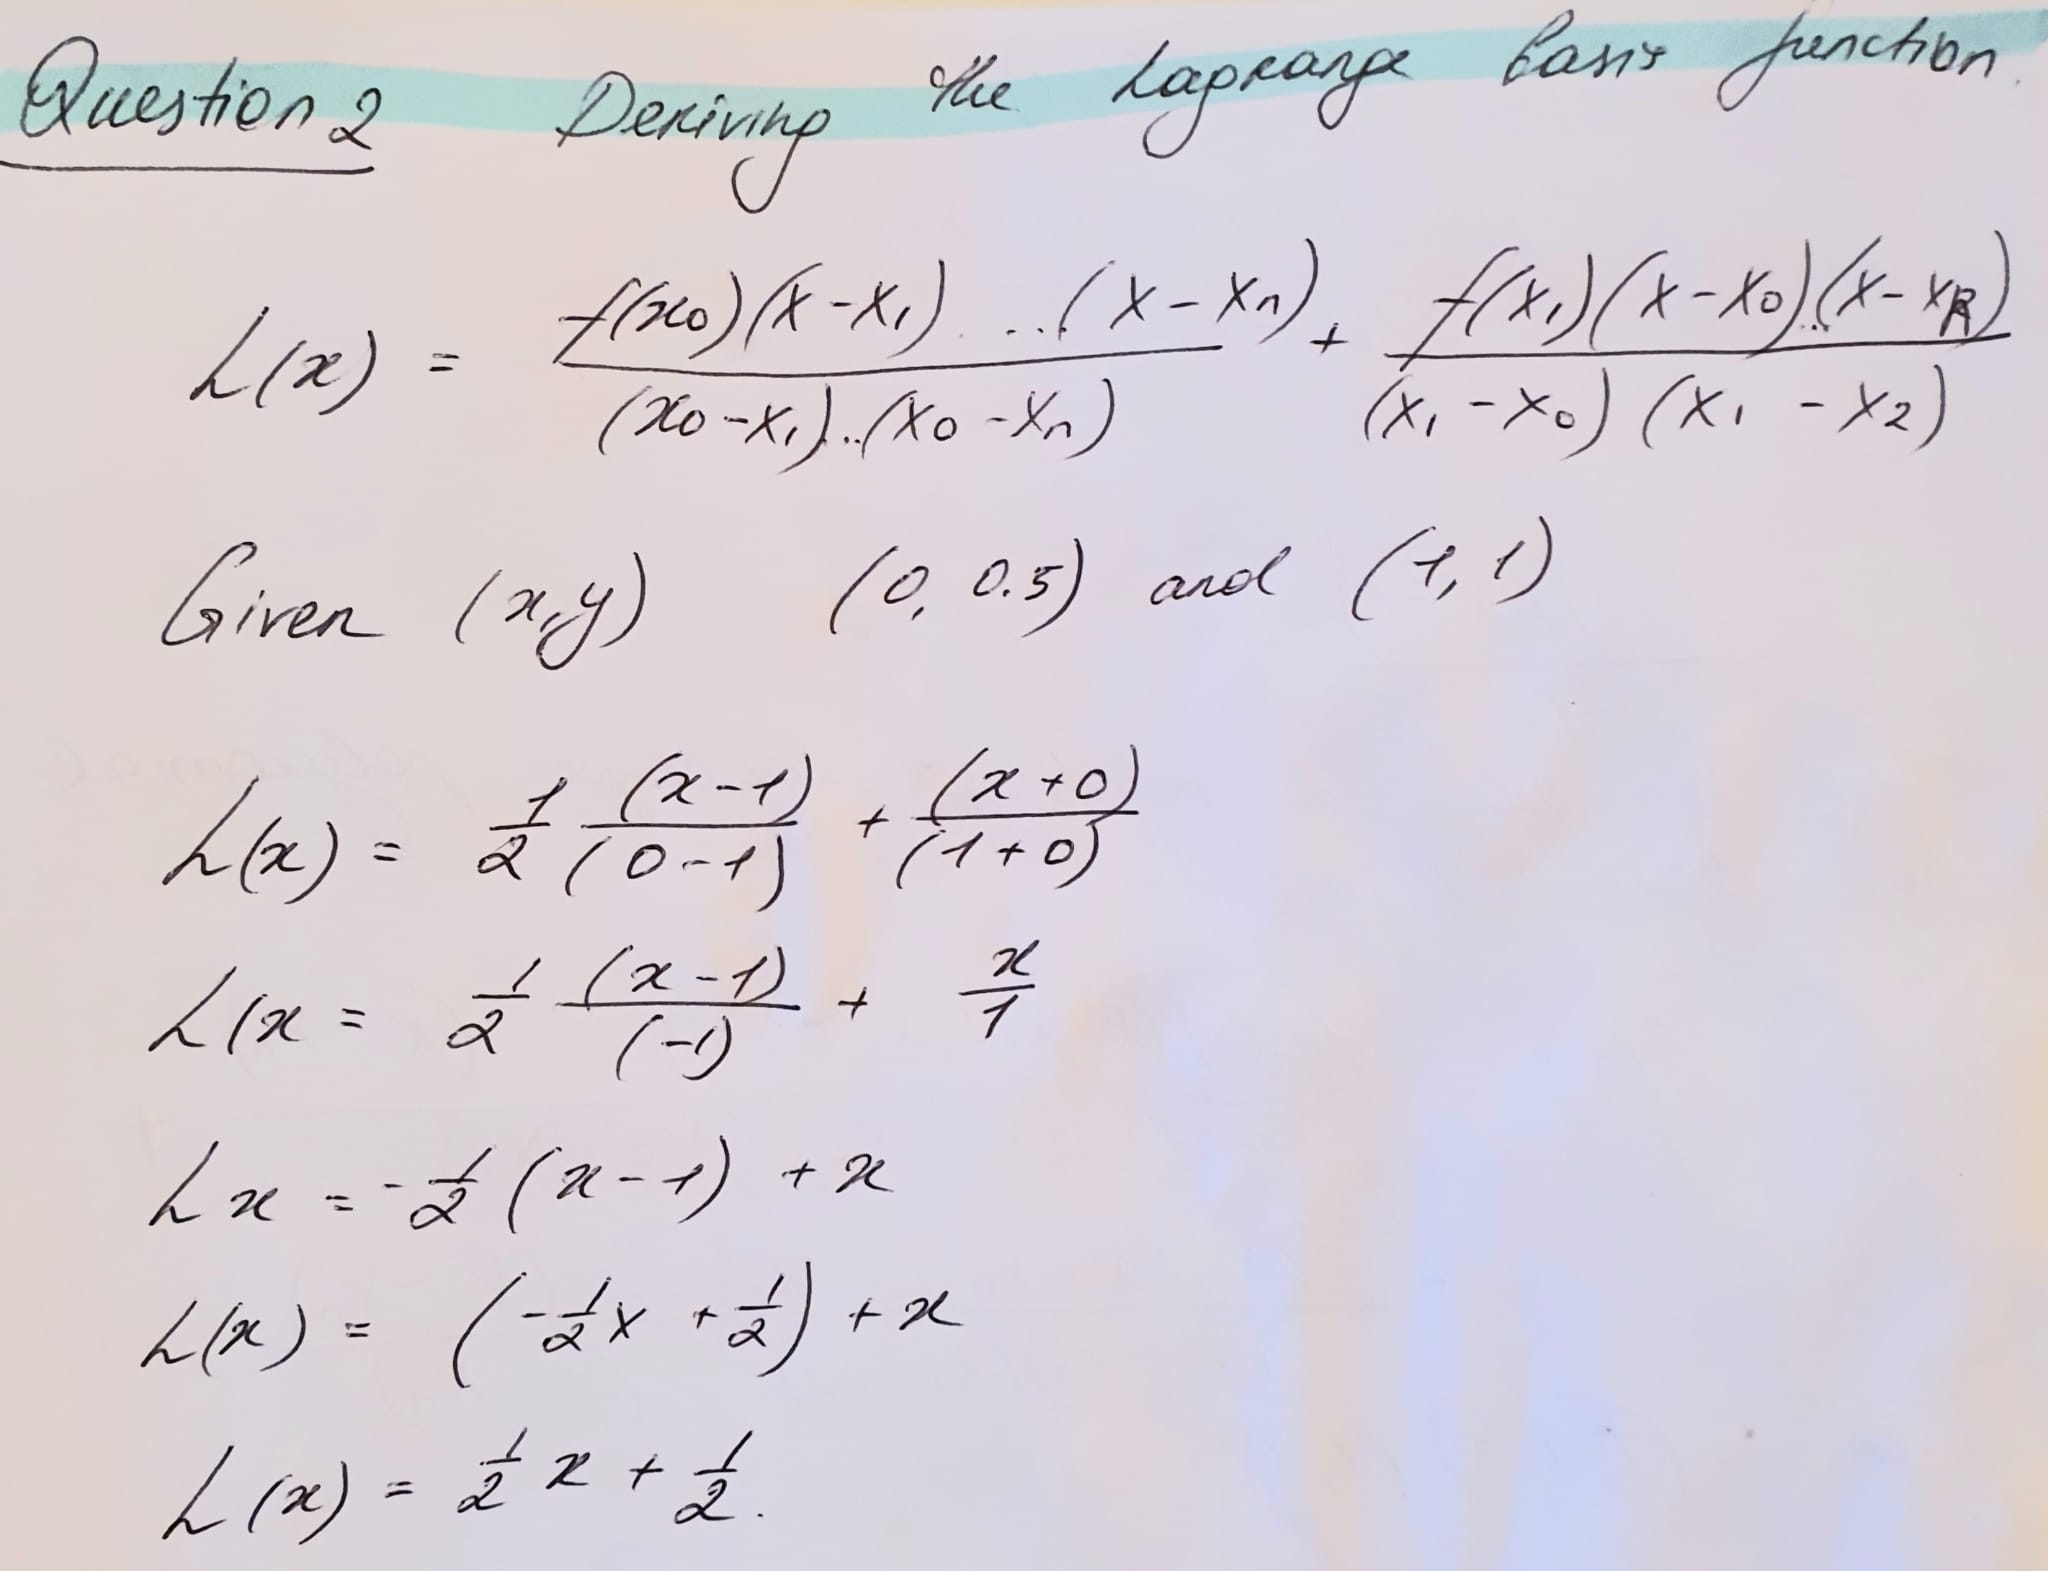 Question 2 Deriving the Lagrange basis function.
L(x) = f(x₀)(x-x₁)...(x-xₙ)/(x₀-x₁)..(x₀-xₙ) + f(x₁)(x-x₀)..(x-xₙ)/(x₁-x₀)(x₁-x₂)
Given (x,y) (0, 0.5) and (1, 1)
L(x) = 1/2 (x-1)/(0-1) + (x+0)/(1+0)
L(x = 1/2 (x-1)/(-1) + x/1
Lx = -1/2 (x-1) + x
L(x) = (-1/2x + 1/2) + x
L(x) = 1/2 x + 1/2.